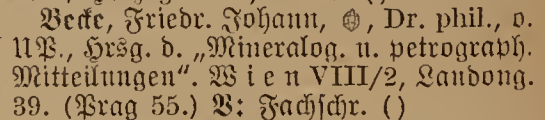 Becke, Friedr. Johann, Dr. phil., o.
UP., Hrsg. d. „Mineralog. u. petrograph.
Mitteilungen“. Wien VIII/2, Laudong.
39. (Prag 55.) V: Fachschr. ()